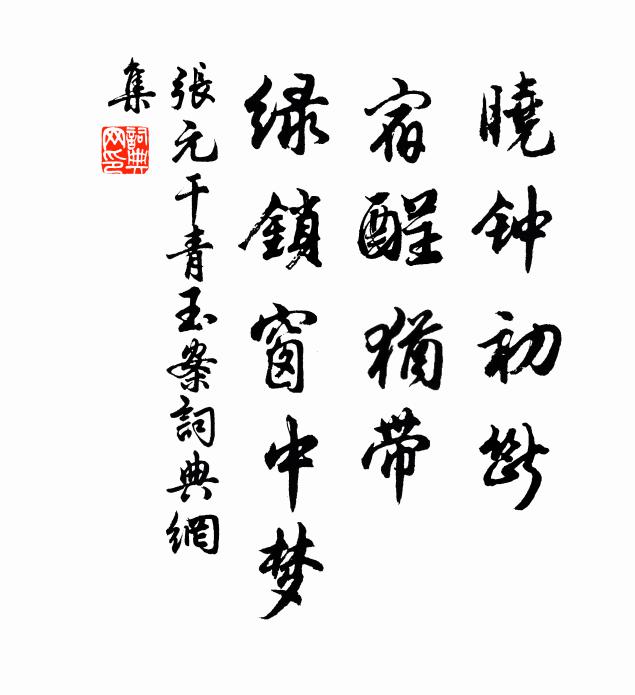 曉钟初断
宿酲猶带
緑鎖窗中梦
張元干青玉案詞典網
集
詞典網印